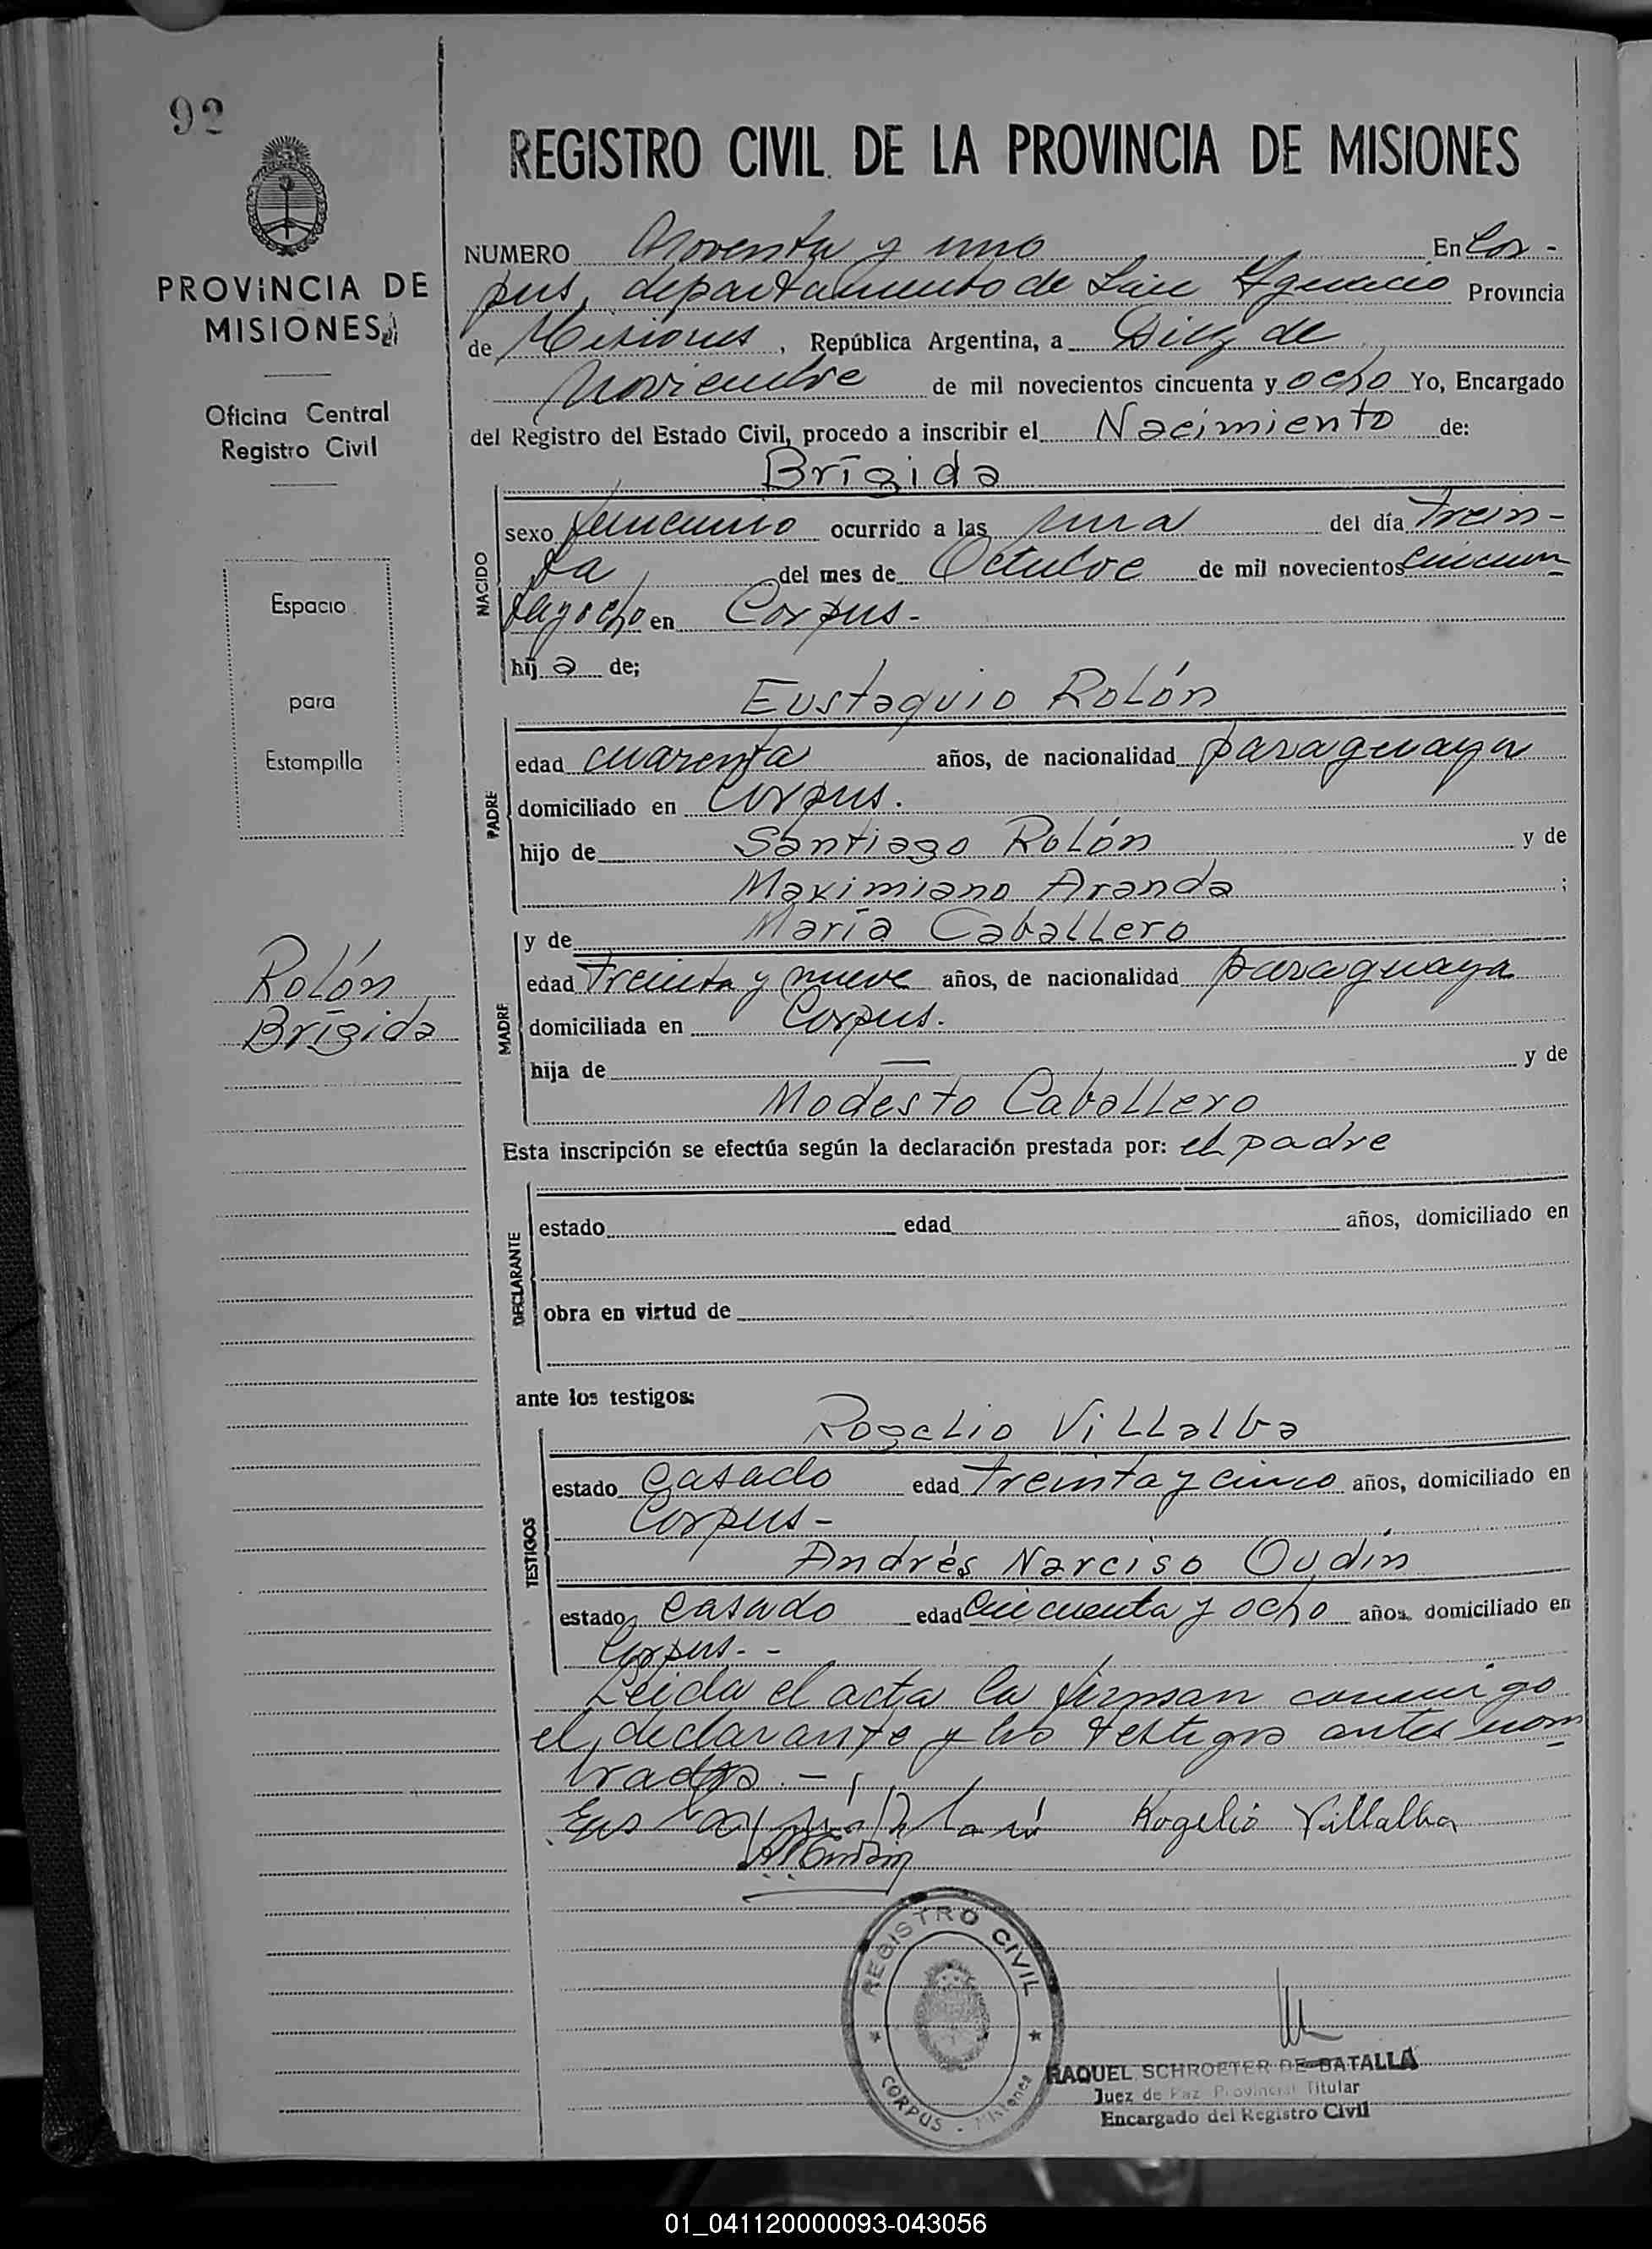 92
REGISTRO CIVIL DE LA PROVINCIA DE MISIONES
PROVINCIA DE
MISIONES
Oficina Central
Registro Civil
Espacio
para
Estampilla
Rolón
Brígida
NUMERO Noventa y uno En Cor-
pus, departamento de San Ygnacio Provincia
de Misiones, República Argentina, a Diez de
Noviembre de mil novecientos cincuenta y ocho Yo, Encargado
del Registro del Estado Civil, procedo a inscribir el Nacimiento de:
Brígida
NACIDO
sexo femenino ocurrido a las una del día trein-
ta del mes de Octubre de mil novecientos cincuen
ta y ocho en Corpus-
hija de;
Eustaquio Rolón
PADRE
edad cuarenta años, de nacionalidad paraguaya
domiciliado en Corpus.
hijo de Santiago Rolón y de
Maximiana Aranda ;
MADRE
y de María Caballero
edad treinta y nueve años, de nacionalidad paraguaya
domiciliada en Corpus.
hija de — y de
Modesta Caballero
Esta inscripción se efectúa según la declaración prestada por: el padre
DECLARANTE
estado edad años, domiciliado en
obra en virtud de
ante los testigos:
Rogelio Villalba
TESTIGOS
estado Casado edad treinta y cinco años, domiciliado en
Corpus-
Andrés Narciso Oudin
estado Casado edad Cincuenta y ocho años, domiciliado en
Corpus.--
Leida el acta la firman conmigo
el declarante y los testigos antes nom
brados.-
Rogelio Villalba
REGISTRO CIVIL
CORPUS - Misiones
RAQUEL SCHROETER DE BATALLA
Juez de Paz Provincial Titular
Encargado del Registro Civil
01_041120000093-043056